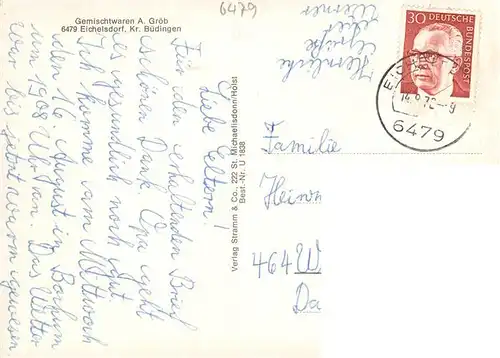 Gemischtwaren A. Gröb
6479 Eichelsdorf, Kr. Büdingen
6479
Liebe Eltern!
Für den erhaltenden Brief
schönen Dank. Opa geht
es gesundlich noch gut
Ich komme am Mittwoch
den 16 August in Bochum
um 19 08 Uhr an. Das Wetter
war bis jetzt warm gewesen
Herzliche
Grüße
euer
Werner
Verlag Stramm & Co., 222 St. Michaelisdonn/Holst
Best.-Nr. U 1838
30 DEUTSCHE
BUNDESPOST
6479
Familie
Heinr
464 W
Da